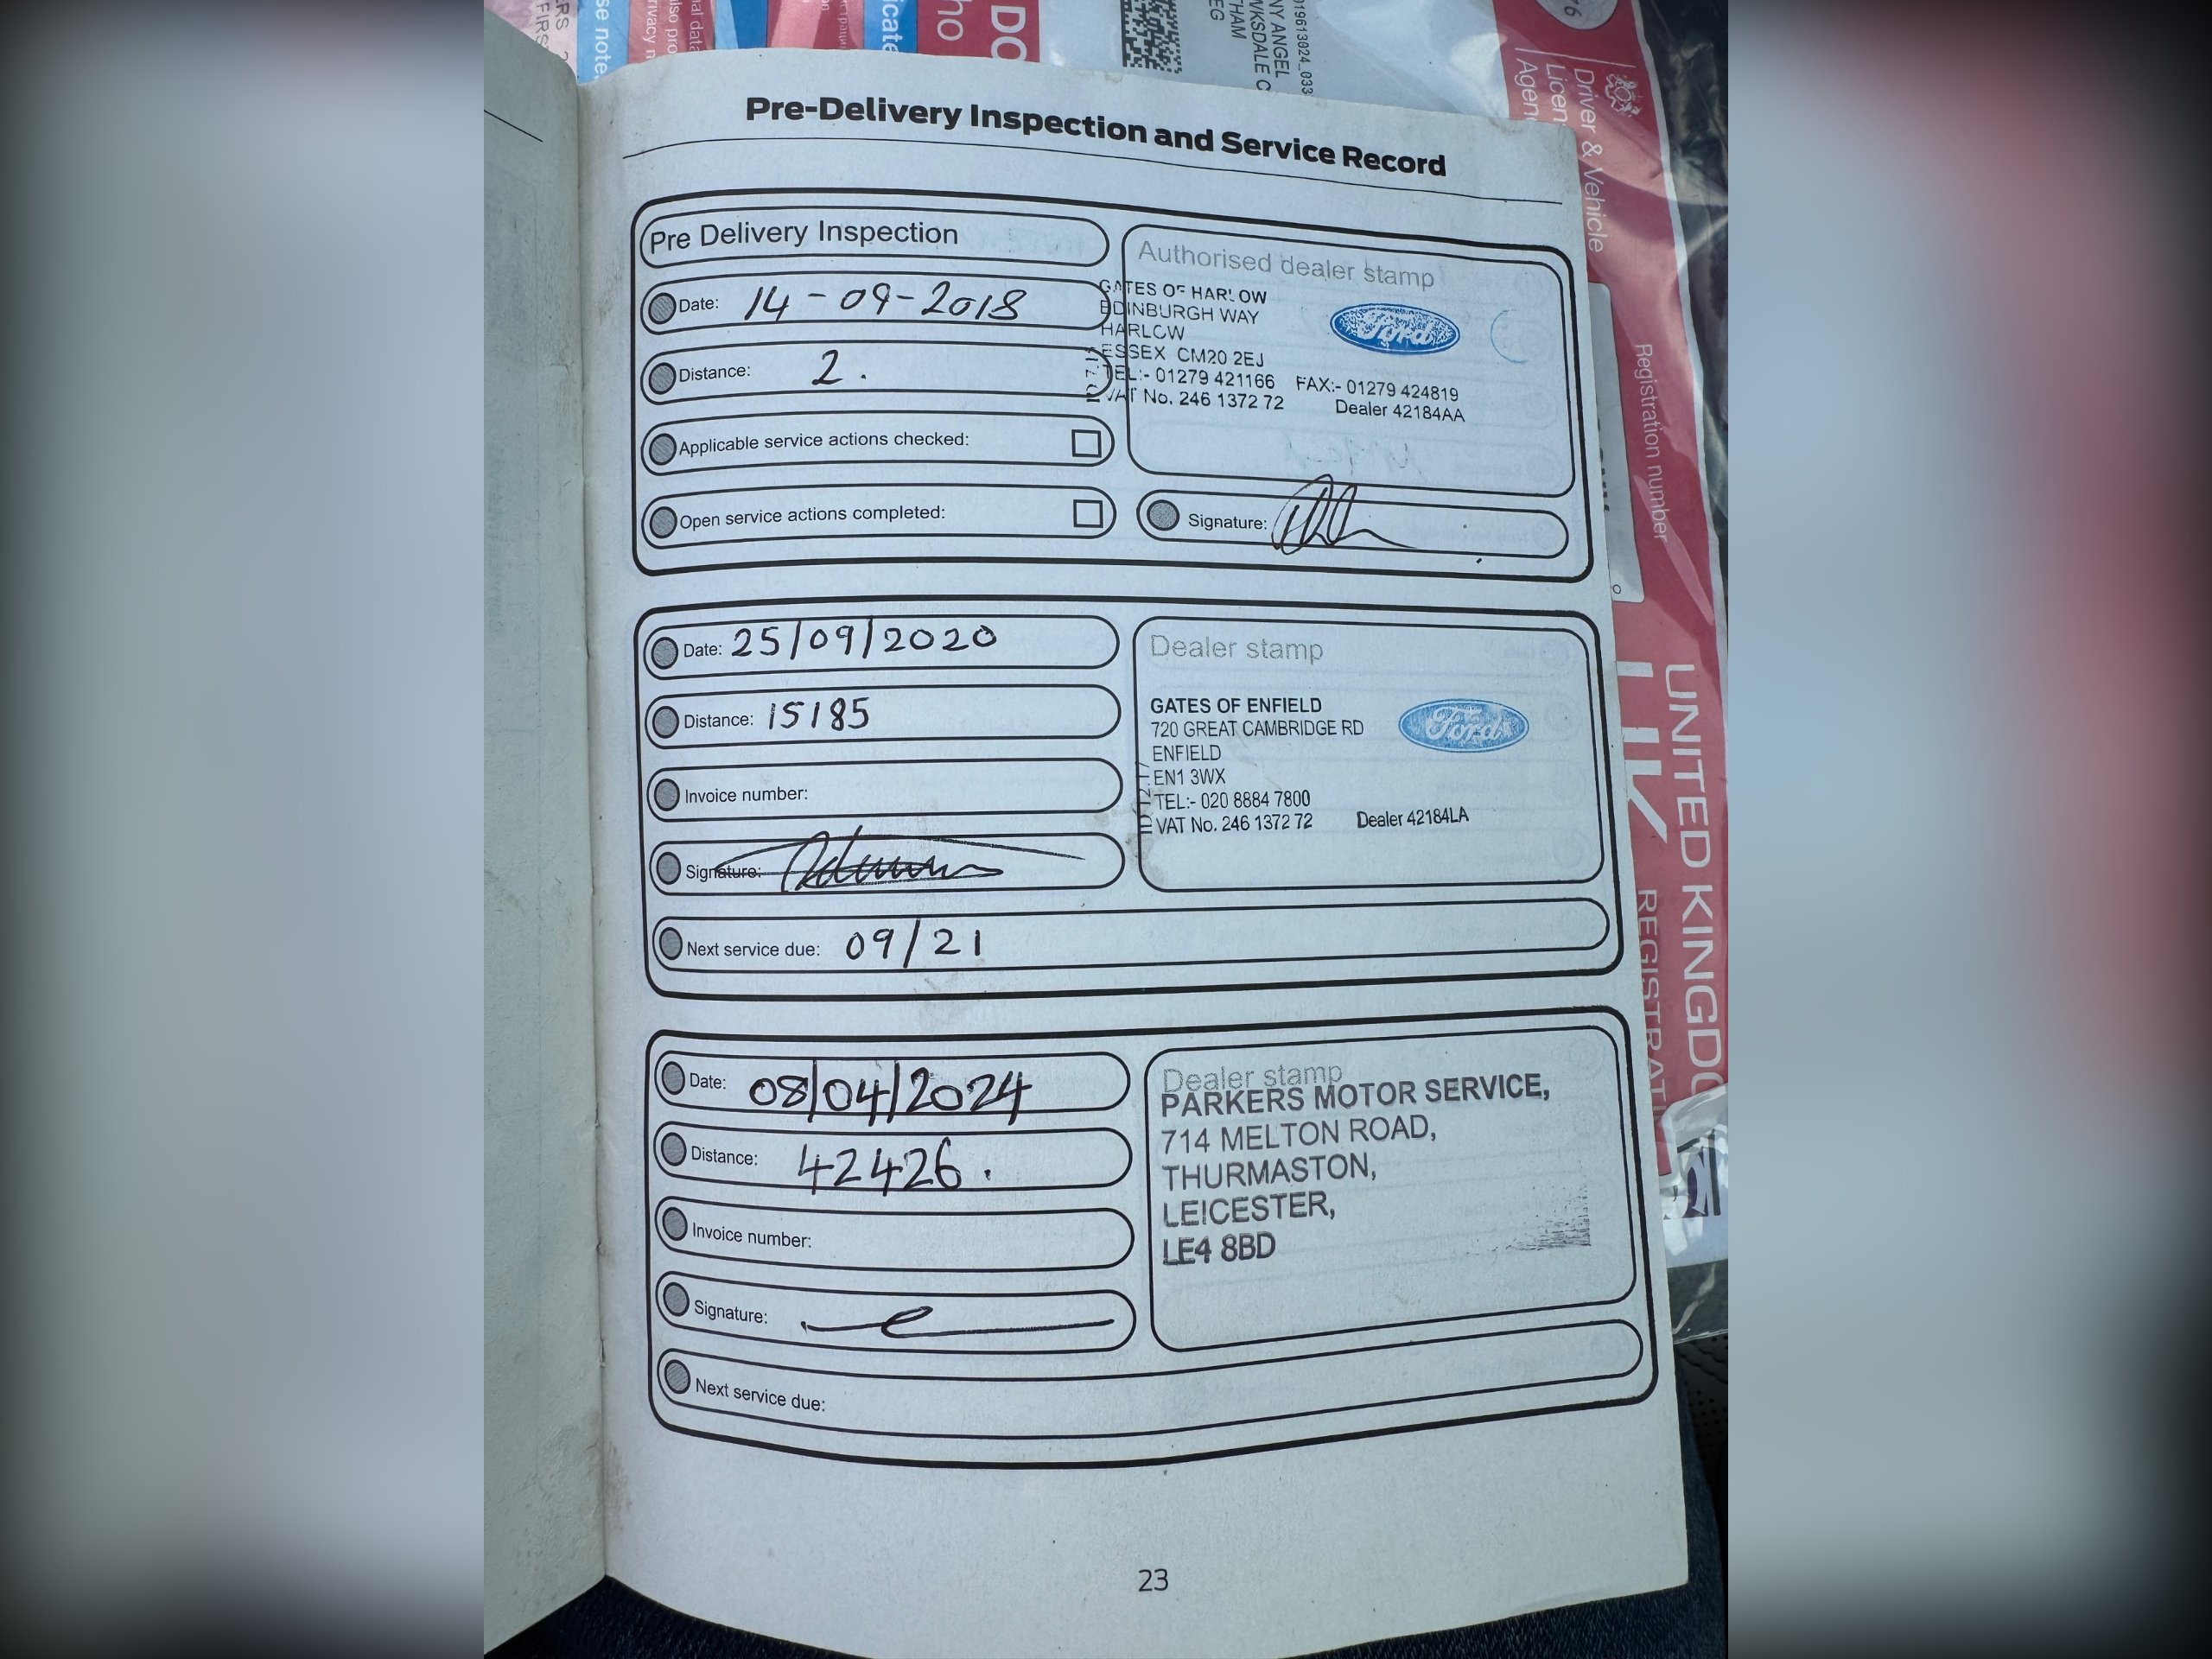 Pre-Delivery Inspection and Service Record
Pre Delivery Inspection
Date: 14-09-2018
Distance: 2.
Applicable service actions checked:
Open service actions completed:
Authorised dealer stamp
GATES OF HARLOW
EDINBURGH WAY
HARLOW
ESSEX CM20 2EJ
TEL:- 01279 421166 FAX:- 01279 424819
VAT No. 246 1372 72 Dealer 42184AA
Ford
Signature:
Date: 25/09/2020
Distance: 15185
Invoice number:
Signature:
Next service due: 09/21
Dealer stamp
GATES OF ENFIELD
720 GREAT CAMBRIDGE RD
ENFIELD
EN1 3WX
TEL:- 020 8884 7800
VAT No. 246 1372 72 Dealer 42184LA
Ford
Date: 08/04/2024
Distance: 42426.
Invoice number:
Signature:
Next service due:
Dealer stamp
PARKERS MOTOR SERVICE,
714 MELTON ROAD,
THURMASTON,
LEICESTER,
LE4 8BD
23
Driver & Vehicle
Registration number
UNITED KINGDO
UK
NY ANGEL